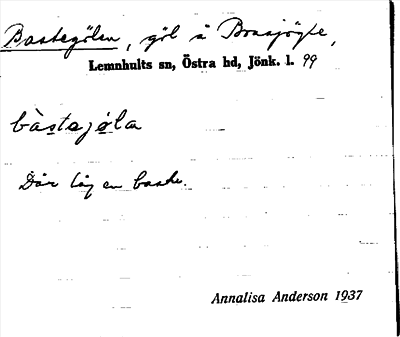 Bastegölen, göl å Brusjöryte,
Lemnhults sn, Östra hd, Jönk. l. 99
bàstejøla
Där låg en bastu.
Annalisa Anderson 1937